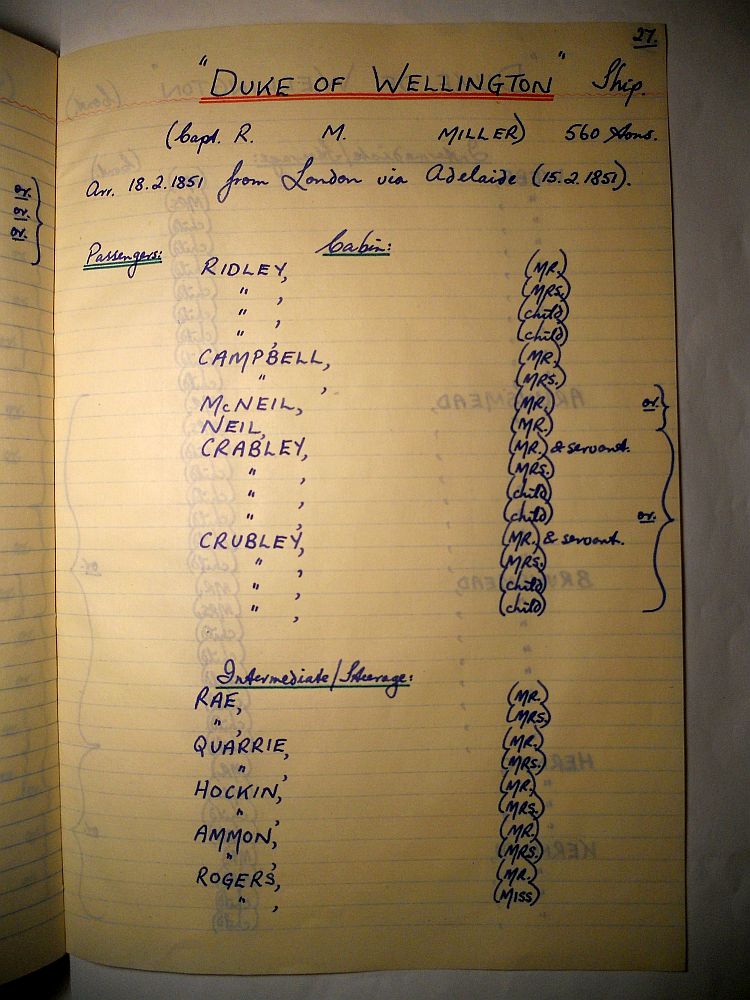 27.
"DUKE OF WELLINGTON" Ship.
(Capt. R. M. MILLER) 560 tons.
Arr. 18.2.1851 from London via Adelaide (15.2.1851).
or.
or.
or.
Passengers: Cabin:
RIDLEY, (MR.)
" , (MRS.)
" , (child)
" , (child)
CAMPBELL, (MR.)
" , (MRS.)
McNEIL, (MR.) or.
NEIL, (MR.)
CRABLEY, (MR.) & servant.
" , (MRS.)
" , (child)
" , (child) or.
CRUBLEY, (MR.) & servant.
" , (MRS.)
" , (child)
" , (child)
Intermediate/Steerage:
RAE, (MR.)
" , (MRS.)
QUARRIE, (MR.)
" , (MRS.)
HOCKIN, (MR.)
" , (MRS.)
AMMON, (MR.)
" , (MRS.)
ROGERS, (MR.)
" , (MISS)